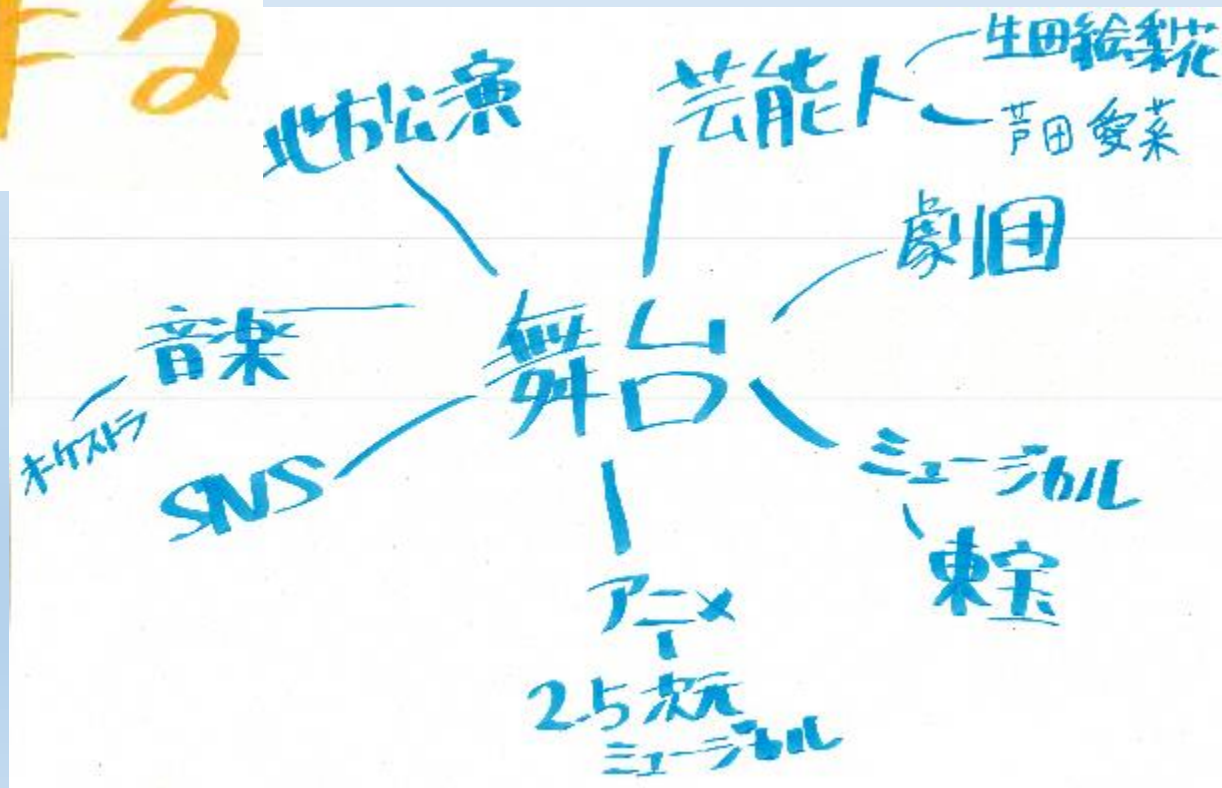 する
地方公演
芸能人
生田絵梨花
芦田愛菜
劇団
音楽
舞台
オーケストラ
SNS
ミュージカル
東宝
アニメ
2.5次元
ミュージカル